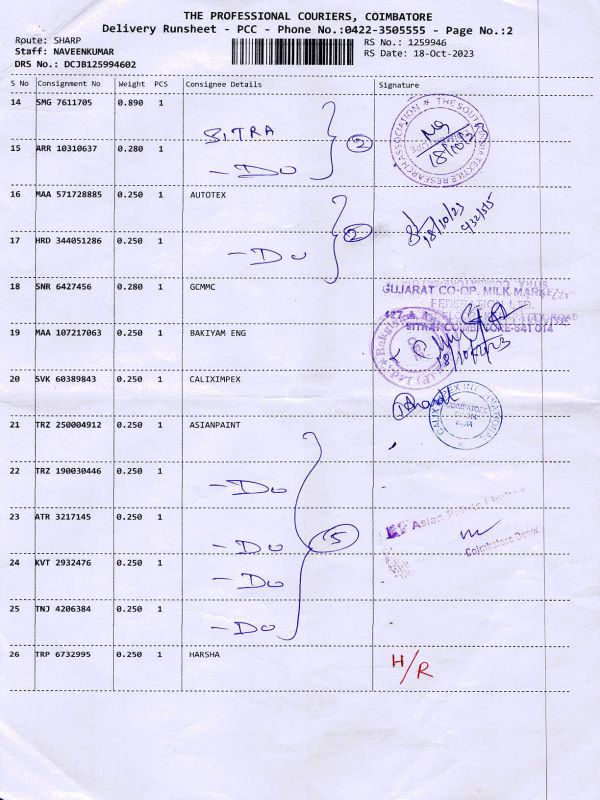 THE PROFESSIONAL COURIERS, COIMBATORE
Delivery Runsheet - PCC - Phone No.:0422-3505555 - Page No.:2
Route: SHARP RS No.: 1259946
Staff: NAVEENKUMAR RS Date: 18-Oct-2023
DRS No.: DCJB125994602
S No Consignment No Weight PCS Consignee Details Signature
14 SMG 7611705 0.890 1
SITRA 2
15 ARR 10310637 0.280 1
- Do
18/10/23
16 MAA 571728885 0.250 1 AUTOTEX
2 18/10/23
17 HRD 344051286 0.250 1
- Do
18 SNR 6427456 0.280 1 GCMMC
GUJARAT CO-OP. MILK
FEDERATION LTD
SITRA, COIMBATORE-641 014
19 MAA 107217063 0.250 1 BAKIYAM ENG
18/10/23
20 SVK 60389843 0.250 1 CALIXIMPEX
COIMBATORE
INDIA
21 TRZ 250004912 0.250 1 ASIANPAINT
22 TRZ 190030446 0.250 1
- Do
23 ATR 3217145 0.250 1 5 Asian Paints Limited
- Do
Coimbatore Depot
24 KVT 2932476 0.250 1
- Do
25 TNJ 4206384 0.250 1
- Do
26 TRP 6732995 0.250 1 HARSHA H/R